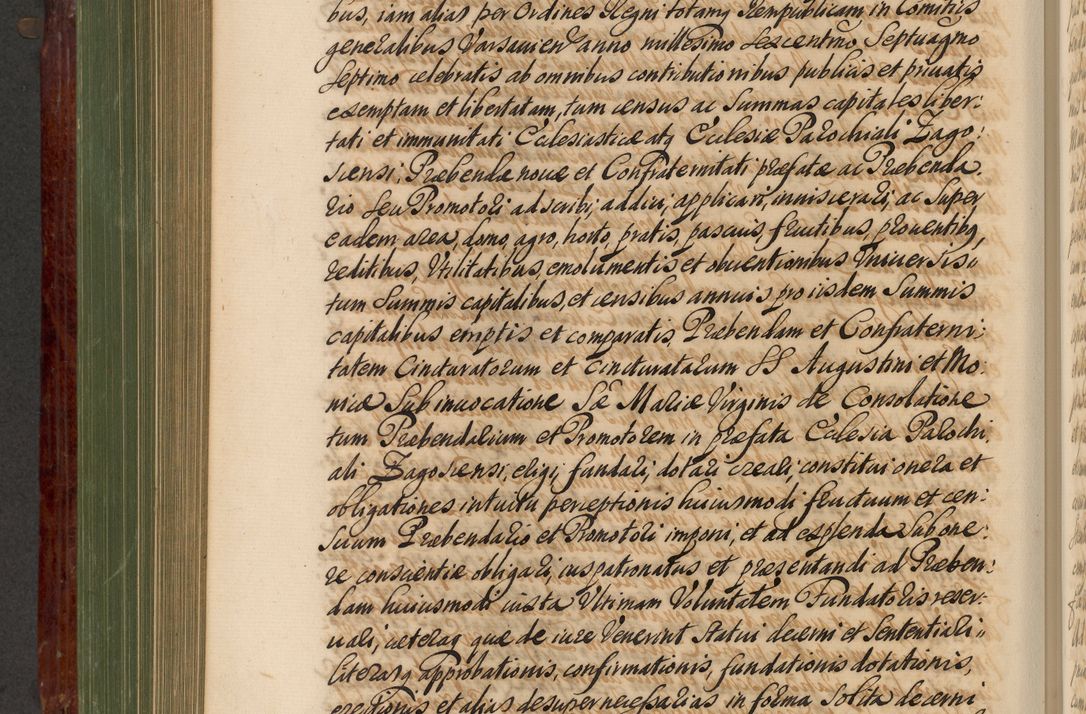 bus, iam alias per Ordines Regni totamq Rempublicam, in Comitiis
generalibus Varsavien anno millesimo sexcentmo Septuagmo
septimo celebratis ab omnibus contributionibus publicis et privatis
exemptam et libertatam, tum census ac Summas capitales liber:
tati et immunitati Ecclesiasticæ atq Ecclesiæ Parochiali Zago:
sciensi, Præbendæ novæ et Confraternitati præfatæ ac Præbenda:
rio seu Promotori adscribi, addici, applicari, inviscerari, ac super
eadem area, domo, agro, horto, pratis, pascuis, fructibus, proventibq
reditibus, Utilitatibus, emolumentis et obventionibus Universis,
tum Summis capitalibus, et censibus annuis pro iisdem Summis
capitalibus emptis et comparatis, Præbendam et Confraterni:
tatem Cincturatorum et Cincturatarum SS Augustini et Mo:
nicæ Sub invocatione Sæ Mariæ Virginis de Consolatione
tum Præbendarium et Promotorem in præfata Ecclesia Parochi
ali Zagosciensi, erigi, fundari, dotari, creari, constitui onera et
obligationes intuitu perceptionis huiusmodi fructuum et cen:
suum Præbendario et Promotori imponi, et ad explenda Sub one:
re conscientiæ obligari, ius patronatus et præsentandi ad Præben:
dam huiusmodi iuxta Ultimam Voluntatem Fundatoris reser:
vari, cæteraq quæ de iure Venerint Statui decerni et Sententiari,
literasq approbationis, confirmationis, fundationis dotationis,
erectionis et alias desuper necessarias in forma Solita decerni